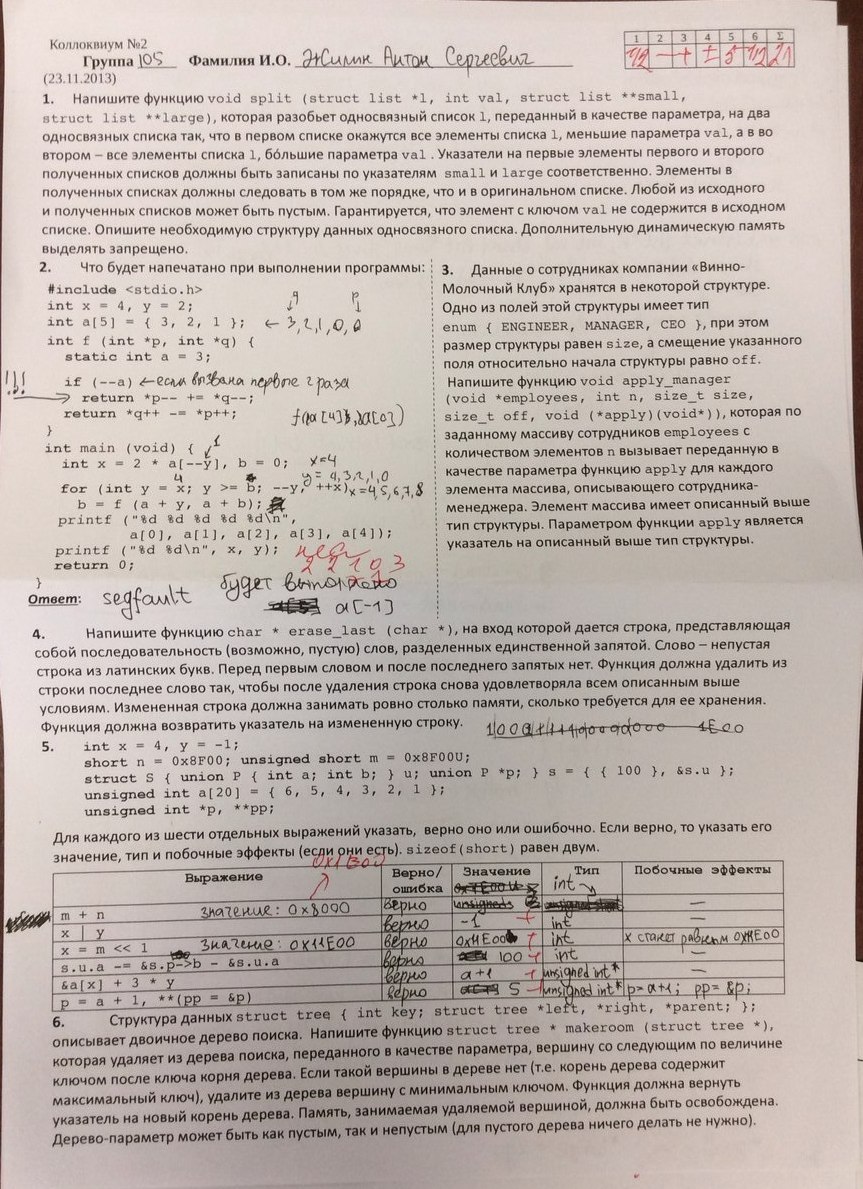 Коллоквиум №2
1 2 3 4 5 6 Σ
Группа 105 Фамилия И.О. Жилик Антон Сергеевич
1/2 — + ± 5 1/2 21
(23.11.2013)
1. Напишите функцию void split (struct list *l, int val, struct list **small,
struct list **large), которая разобьет односвязный список l, переданный в качестве параметра, на два
односвязных списка так, что в первом списке окажутся все элементы списка l, меньшие параметра val, а в во
втором – все элементы списка l, бóльшие параметра val . Указатели на первые элементы первого и второго
полученных списков должны быть записаны по указателям small и large соответственно. Элементы в
полученных списках должны следовать в том же порядке, что и в оригинальном списке. Любой из исходного
и полученных списков может быть пустым. Гарантируется, что элемент с ключом val не содержится в исходном
списке. Опишите необходимую структуру данных односвязного списка. Дополнительную динамическую память
выделять запрещено.
2. Что будет напечатано при выполнении программы:
#include <stdio.h>
int x = 4, y = 2;
q p
int a[5] = { 3, 2, 1 }; ← 3, 2, 1, 0, 0
int f (int *p, int *q) {
static int a = 3;
!!! if (--a) ← если вызвана первые 2 раза
return *p-- += *q--;
return *q++ -= *p++;
}
int main (void) { 1
int x = 2 * a[--y], b = 0; x=4
y = 4,3,2,1,0
for (int y = x; y >= b; --y, ++x) x=4,5,6,7,8
b = f (a + y, a + b);
printf ("%d %d %d %d %d\n",
a[0], a[1], a[2], a[3], a[4]);
printf ("%d %d\n", x, y);
2 2 1 0 3
return 0;
}
Ответ: segfault будет
a[-1]
3. Данные о сотрудниках компании «Винно-
Молочный Клуб» хранятся в некоторой структуре.
Одно из полей этой структуры имеет тип
enum { ENGINEER, MANAGER, CEO }, при этом
размер структуры равен size, а смещение указанного
поля относительно начала структуры равно off.
Напишите функцию void apply_manager
(void *employees, int n, size_t size,
size_t off, void (*apply)(void*)), которая по
заданному массиву сотрудников employees с
количеством элементов n вызывает переданную в
качестве параметра функцию apply для каждого
элемента массива, описывающего сотрудника-
менеджера. Элемент массива имеет описанный выше
тип структуры. Параметром функции apply является
указатель на описанный выше тип структуры.
4. Напишите функцию char * erase_last (char *), на вход которой дается строка, представляющая
собой последовательность (возможно, пустую) слов, разделенных единственной запятой. Слово – непустая
строка из латинских букв. Перед первым словом и после последнего запятых нет. Функция должна удалить из
строки последнее слово так, чтобы после удаления строка снова удовлетворяла всем описанным выше
условиям. Измененная строка должна занимать ровно столько памяти, сколько требуется для ее хранения.
Функция должна возвратить указатель на измененную строку.
5. int x = 4, y = -1;
short n = 0x8F00; unsigned short m = 0x8F00U;
struct S { union P { int a; int b; } u; union P *p; } s = { { 100 }, &s.u };
unsigned int a[20] = { 6, 5, 4, 3, 2, 1 };
unsigned int *p, **pp;
Для каждого из шести отдельных выражений указать, верно оно или ошибочно. Если верно, то указать его
значение, тип и побочные эффекты (если они есть). sizeof(short) равен двум.
Выражение Верно/ошибка Значение Тип Побочные эффекты
m + n значение: 0x8000 верно int —
x | y верно -1 + int —
x = m << 1 Значение: 0x11E00 верно 0x11E00 + int x станет равным 0x11E00
s.u.a -= &s.p->b - &s.u.a верно 100 + int —
&a[x] + 3 * y верно a+1 + unsigned int* —
p = a + 1, **(pp = &p) верно 5 + unsigned int* p=a+1; pp=&p;
6. Структура данных struct tree { int key; struct tree *left, *right, *parent; };
описывает двоичное дерево поиска. Напишите функцию struct tree * makeroom (struct tree *),
которая удаляет из дерева поиска, переданного в качестве параметра, вершину со следующим по величине
ключом после ключа корня дерева. Если такой вершины в дереве нет (т.е. корень дерева содержит
максимальный ключ), удалите из дерева вершину с минимальным ключом. Функция должна вернуть
указатель на новый корень дерева. Память, занимаемая удаляемой вершиной, должна быть освобождена.
Дерево-параметр может быть как пустым, так и непустым (для пустого дерева ничего делать не нужно).